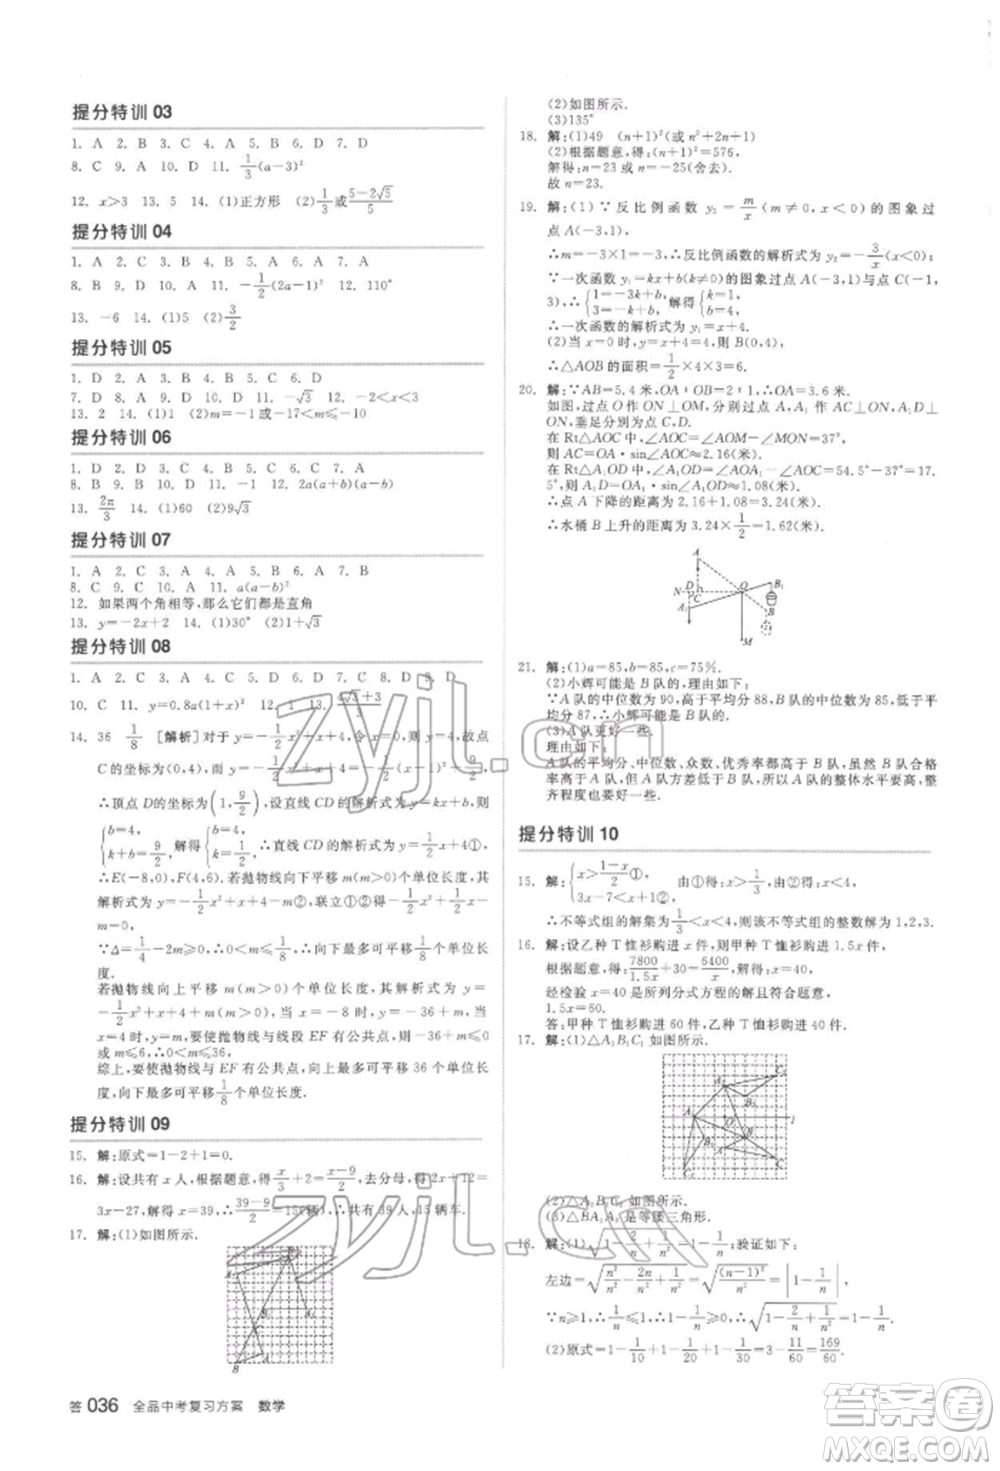 提分特训 03
1. A 2. B 3. C 4. D 5. B 6. D 7. A
8. C 9. A 10. D 11. 1/3(a-3)²
12. x>3 13. 5 14. (1)正方形 (2)1/3或(5-2√5)/5
提分特训 04
1. A 2. C 3. B 4. D 5. A 6. D 7. A
8. B 9. D 10. A 11. -1/2(2a-1)² 12. 110°
13. -6 14. (1)5 (2)3/2
提分特训 05
1. D 2. D 3. A 4. B 5. C 6. D
7. D 8. A 9. B 10. B 11. -√3 12. -2<x<3
13. 2 14. (1)1 (2)m=-1或-17<m≤-10
提分特训 06
1. D 2. D 3. B 4. A 5. C 6. C 7. D
8. B 9. B 10. D 11. -1 12. 2a(a+b)(a-b)
13. 2π/3 14. (1)60 (2)9√3
提分特训 07
1. A 2. B 3. D 4. A 5. A 6. B 7. D
8. C 9. C 10. A 11. a(a-b)²
12. 如果两个角相等,那么它们都是直角
13. y=-2x+2 14. (1)30° (2)1+√3
提分特训 08
1. A 2. C 3. D 4. B 5. A 6. C 7. D 8. D 9. D
10. C 11. y=0.8a(1+x)² 12. 1 13. (4√3+3)/3
14. 36 1/8 [解析] 对于 y=-1/2x²+x+4,当 x=0 时,y=4,故点
C 的坐标为(0,4),
∴顶点 D的坐标为(1,9/2),设直线 CD 的解析式为 y=kx+b,则
{b=4, k+b=9/2, 解得{b=4, k=1/2, ∴直线 CD 的解析式为 y=1/2x+4①.
∴E(-8,0),F(4,6).若抛物线向下平移 m(m>0)个单位长度,其
解析式为 y=-1/2x²+x+4-m②,联立①②得-1/2x²+1/2x-
m=0.
∵Δ=1/4-2m≥0,∴0<m≤1/8,∴向下最多可平移1/8个单位长
度.
若抛物线向上平移 m(m>0)个单位长度,其解析式为 y=
-1/2x²+x+4+m,当 x=-8 时,y=-36+m,当
x=4 时,y=m,要使抛物线与线段 EF 有公共点,则-36+m≤0
或 m≤6,∴0<m≤36.
综上,要使抛物线与EF 有公共点,向上最多可平移 36 个单位长
度,向下最多可平移1/8个单位长度.
提分特训 09
15. 解:原式=1-2+1=0.
16. 解:设共有 x 人,根据题意,得x/3+2=(x-9)/2,去分母,得2x+12=
3x-27,解得 x=39,∴(39-9)/2=15(辆),∴共有39人,15 辆车.
17. 解:(1)如图所示.
(2)如图所示.
(3)135°
18. 解:(1)49 (n+1)²(或 n²+2n+1)
(2)根据题意,得:(n+1)²=576,
解得:n=23 或 n=-25(舍去).
故 n=23.
19. 解:(1)∵反比例函数 y₂=m/x(m≠0,x<0)的图象过
点 A(-3,1),
∴m=-3×1=-3,∴反比例函数的解析式为 y₂=-3/x(x<0);
∵一次函数 y₁=kx+b(k≠0)的图象过点 A(-3,1)与点 C(-1,
3),∴{1=-3k+b, 3=-k+b, 解得{k=1, b=4,
∴一次函数的解析式为 y₁=x+4.
(2)当 x=0 时,y=x+4=4,则 B(0,4),
∴△AOB 的面积=1/2×4×3=6.
20. 解:∵AB=5.4米,OA∶OB=2∶1,∴OA=3.6米.
如图,过点 O作 ON⊥OM,分别过点 A,A₁ 作 AC⊥ON,A₁D⊥
ON,垂足分别为点 C,D.
在 Rt△AOC 中,∠AOC=∠AOM-∠MON=37°,
则 AC=OA·sin∠AOC≈2.16(米).
在 Rt△A₁OD 中,∠A₁OC=∠AOA₁-∠AOC=54.5°-37°=17.
5°,A₁D=OA₁·sin∠A₁OD≈1.08(米).
∴点 A 下降的距离为 2.16+1.08=3.24(米).
∴水桶 B 上升的距离为 3.24×1/2=1.62(米).
A D B₁ N C O A₁ B M
21. 解:(1)a=85,b=85,c=75%.
(2)小辉可能是 B 队的,理由如下:
∵A 队的中位数为 90,高于平均分 88,B 队的中位数为 85,低于平
均分 87,∴小辉可能是 B 队的.
(3)A 队更好一些.
理由如下:
A 队的平均分、中位数、众数、优秀率都高于 B 队,虽然 A 队合格
率高于 A 队,但差距不是太大,所以 A 队的整体水平高一些,整
齐程度也要好一些.
提分特训 10
15. 解:{x>(1-x)/2①, 3x-7<x+1②. 由①得:x>1/3,由②得:x<4,
∴不等式组的解集为1/3<x<4,则该不等式组的整数解为 1,2,3.
16. 解:设乙种 T 恤衫购进 x 件,则甲种 T 恤衫购进 1.5x 件,
根据题意,得:7800/1.5x+30=6400/x,解得:x=40,
经检验 x=40 是所列分式方程的解且符合题意,
1.5x=60.
答:甲种 T 恤衫购进 60 件,乙种 T 恤衫购进 40 件.
17. 解:(1)△A₁B₁C₁ 如图所示.
(2)△A₂B₂C₂ 如图所示.
(3)△BA₁A₂是等腰三角形.
18. 解:(1)√(1-2/n+1/n²)=1-1/n;验证如下:
左边=√(n²/n²-2n/n²+1/n²)=√((n-1)²/n²)=|1-1/n|,
∵n≥1,∴1/n≤1,∴√(1-2/n+1/n²)=1-1/n.
(2)原式=1-1/10+1-1/20+1-1/30=3-11/60=169/60.
答 036 全品中考复习方案 数学
zyjl.cn
zyjl.cn
答案圈
MXQE.COM